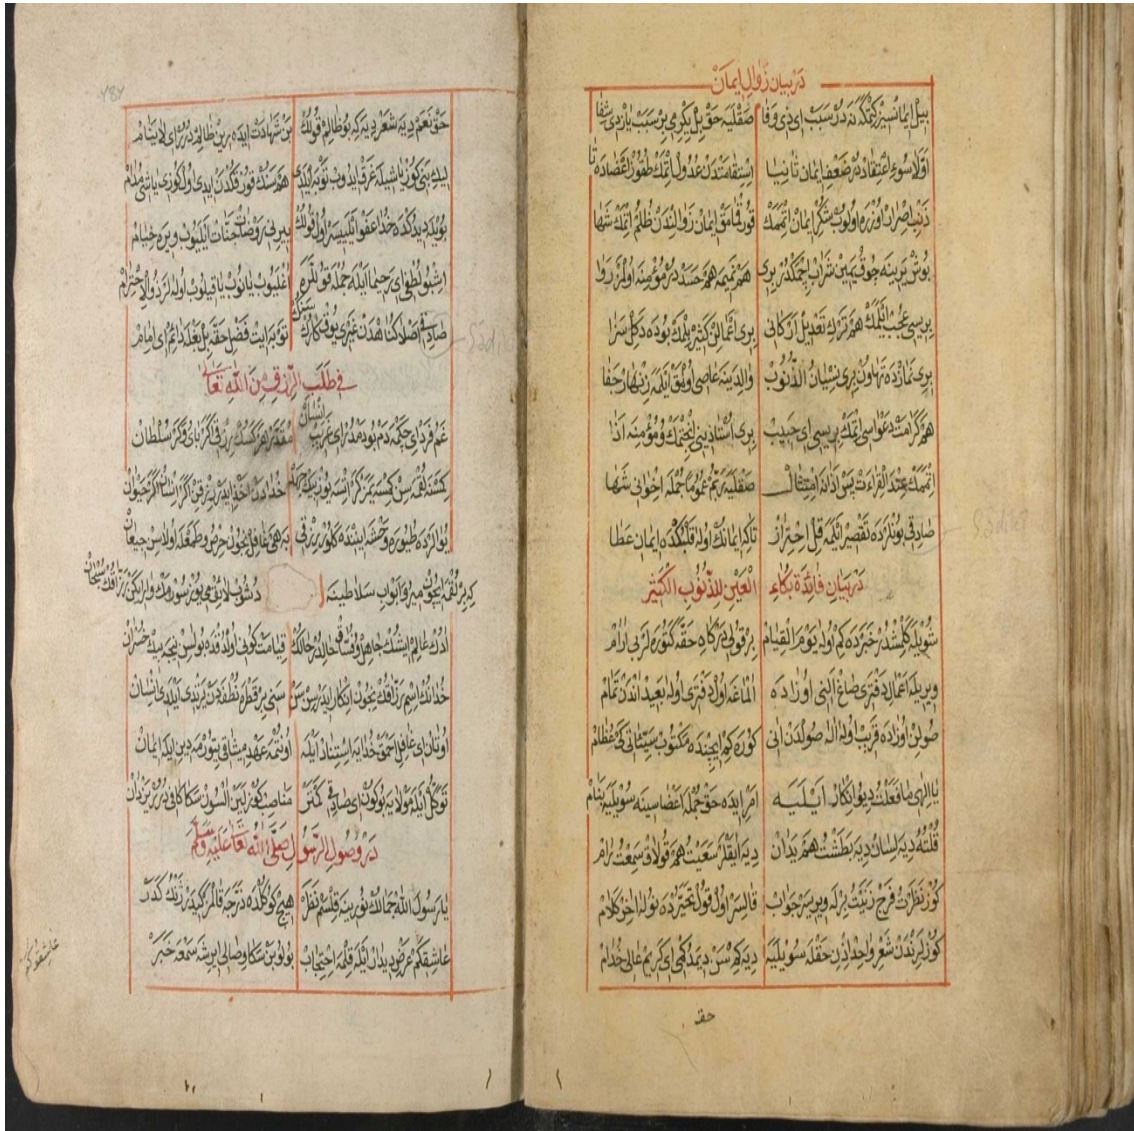 در بیان زوال ایمان
بیل ایمانسیز کتمکه نه در سبب ای ذی وفا صقلیه حق بل یکرمی بر سبب یازدی شفا
اولا سوء اعتقاددر ضعف ایمان ثانیا استقامتدن عدول اتمک طقوز اعضاده تا
ذنب اصرار اوزره اولوب شکر ایمان اتممک قورقمامق ایمان زوالندن ظلم اتمک شها
بونش یرینه چوق یمین شراب اچمکدر بری هم نمیمه هم حسد در مؤمنه اولمز روا
بریسی عجب ایلمک هم ترک تعدیل ارکانی بری اعمالن کثیر بلمک بوده دکل سزا
بری نمازده تهاون بری نسیان الذنوب والدینه عاصی اولمق ایلمه زنهار جفا
هم کرامت دعواسی اتمک بریسی ای حبیب بری استاذینی انجتمک و مؤمنه اذا
اتممک عند القراءت یس اذانه امتثال صقلیه ربم عموما جمله اخوانی شها
صادقی بونلرده تقصیر ایلمه قل احتراز تا که ایمانک اوله قلبکده ایمان عطا
در بیان فائدة بکاء العین للذنوب الکثیر
شویله کلمشدر خبرده کم اوله یوم القیام بر قولی درکاه حقه کتوره لر بی ارام
ویریله اعمال دفتری صاغ النی اوزاده الماغه اول دفتری اوله بعید اندن تمام
صولن اوزاده قریب اوله اله صولدن انی کوره کم ایچنده مکتوب سیئاتی کی عظام
یا الهی ما فعلت دیو انکار ایلیه امر ایده حق جمله اعضاسینه سویلیه بنام
قلته دیه لسان دیه بطشت هم یدان دیه ایقلر سعیت هم قولاق سمعت رام
کوز نظرت فرج زنیت بر له ویریسر جواب قالیسر اول قول تحیرده بوله اخر کلام
کوزلرندن شعر واحد اذن حقله سویلیه دیه کم سن دیمدکمی ای کریم عالی خدام
حقـ
حق نعم دیه شعر دیه که بو ظالم قولک بن شهادت ایده رین ظالم دررای لا ینام
لیک بنی کوز یاشیله غرق ایدوب توبه ایلدی هم سنک قورقکدن ایدی اول کوزی یاشی مدام
بویله دیدکده خدا عفو ایلییسر اول قولک بیرنی روضات جنات ایلیوب ویره خیام
اشبو لطفی ای رحیما ایله جمله قوللره اغلیوب یانوب یاقیلوب اوله لر ذو الاحترام
صادقی اصلا کناهدن غیری یوقدر کارک سنک توبه ایت فضل حقه بل بغله دائم ای امام
فی طلب الرزق من الله تعالی
غم فردا ی چکمه دم بو دمدر ای غریب انسان مقدر هر کسک رزقی اکر بای و کر سلطان
کمسنه لقمه سن کمسه یمز کر اتسه یوز بیک جهد خدادن اخذ ایدر رزقن اکر انسان اکر حیوان
بولرده طیوره وحشه ایشنده کلور رزقی به هی غافل نیچون حرص و طمعله اولاسن جیعان
که بر لقما ایچون میر و ابواب سلاطینه دشوب لایقمی یوز سورمک وار ایکن رزاقک سبحان
ادک عالم ایشک جاهل و فساق حالدر حالک قیامت کونی اولدقده بولسن نیجه بیک خسران
خدانک اسم رزاقک نیچون انکار ایدرسن سن سنی بر قطره نطفه دن یرتدی ایلدی انسان
اوتان ای غافل احمق خدایه استناد ایله اونتمه عهد میثاقی یتورمه دین ایله ایمان
توکل ایله مولایه بو کون ای صادقی کمتر مناصب کوزلین السون سکا کافی درر یزدان
در وصول الرسول صلی الله تعالی علیه وسلم
یا رسول الله جمالک نورینه قلسم نظر هیچ کوکلده ذره جه قالمز کیدر زنک کدر
عاشقکم عرض دیدار ایله قلمه احتجاب بولوبن سکا وصالی ایرشه سمعه خبر